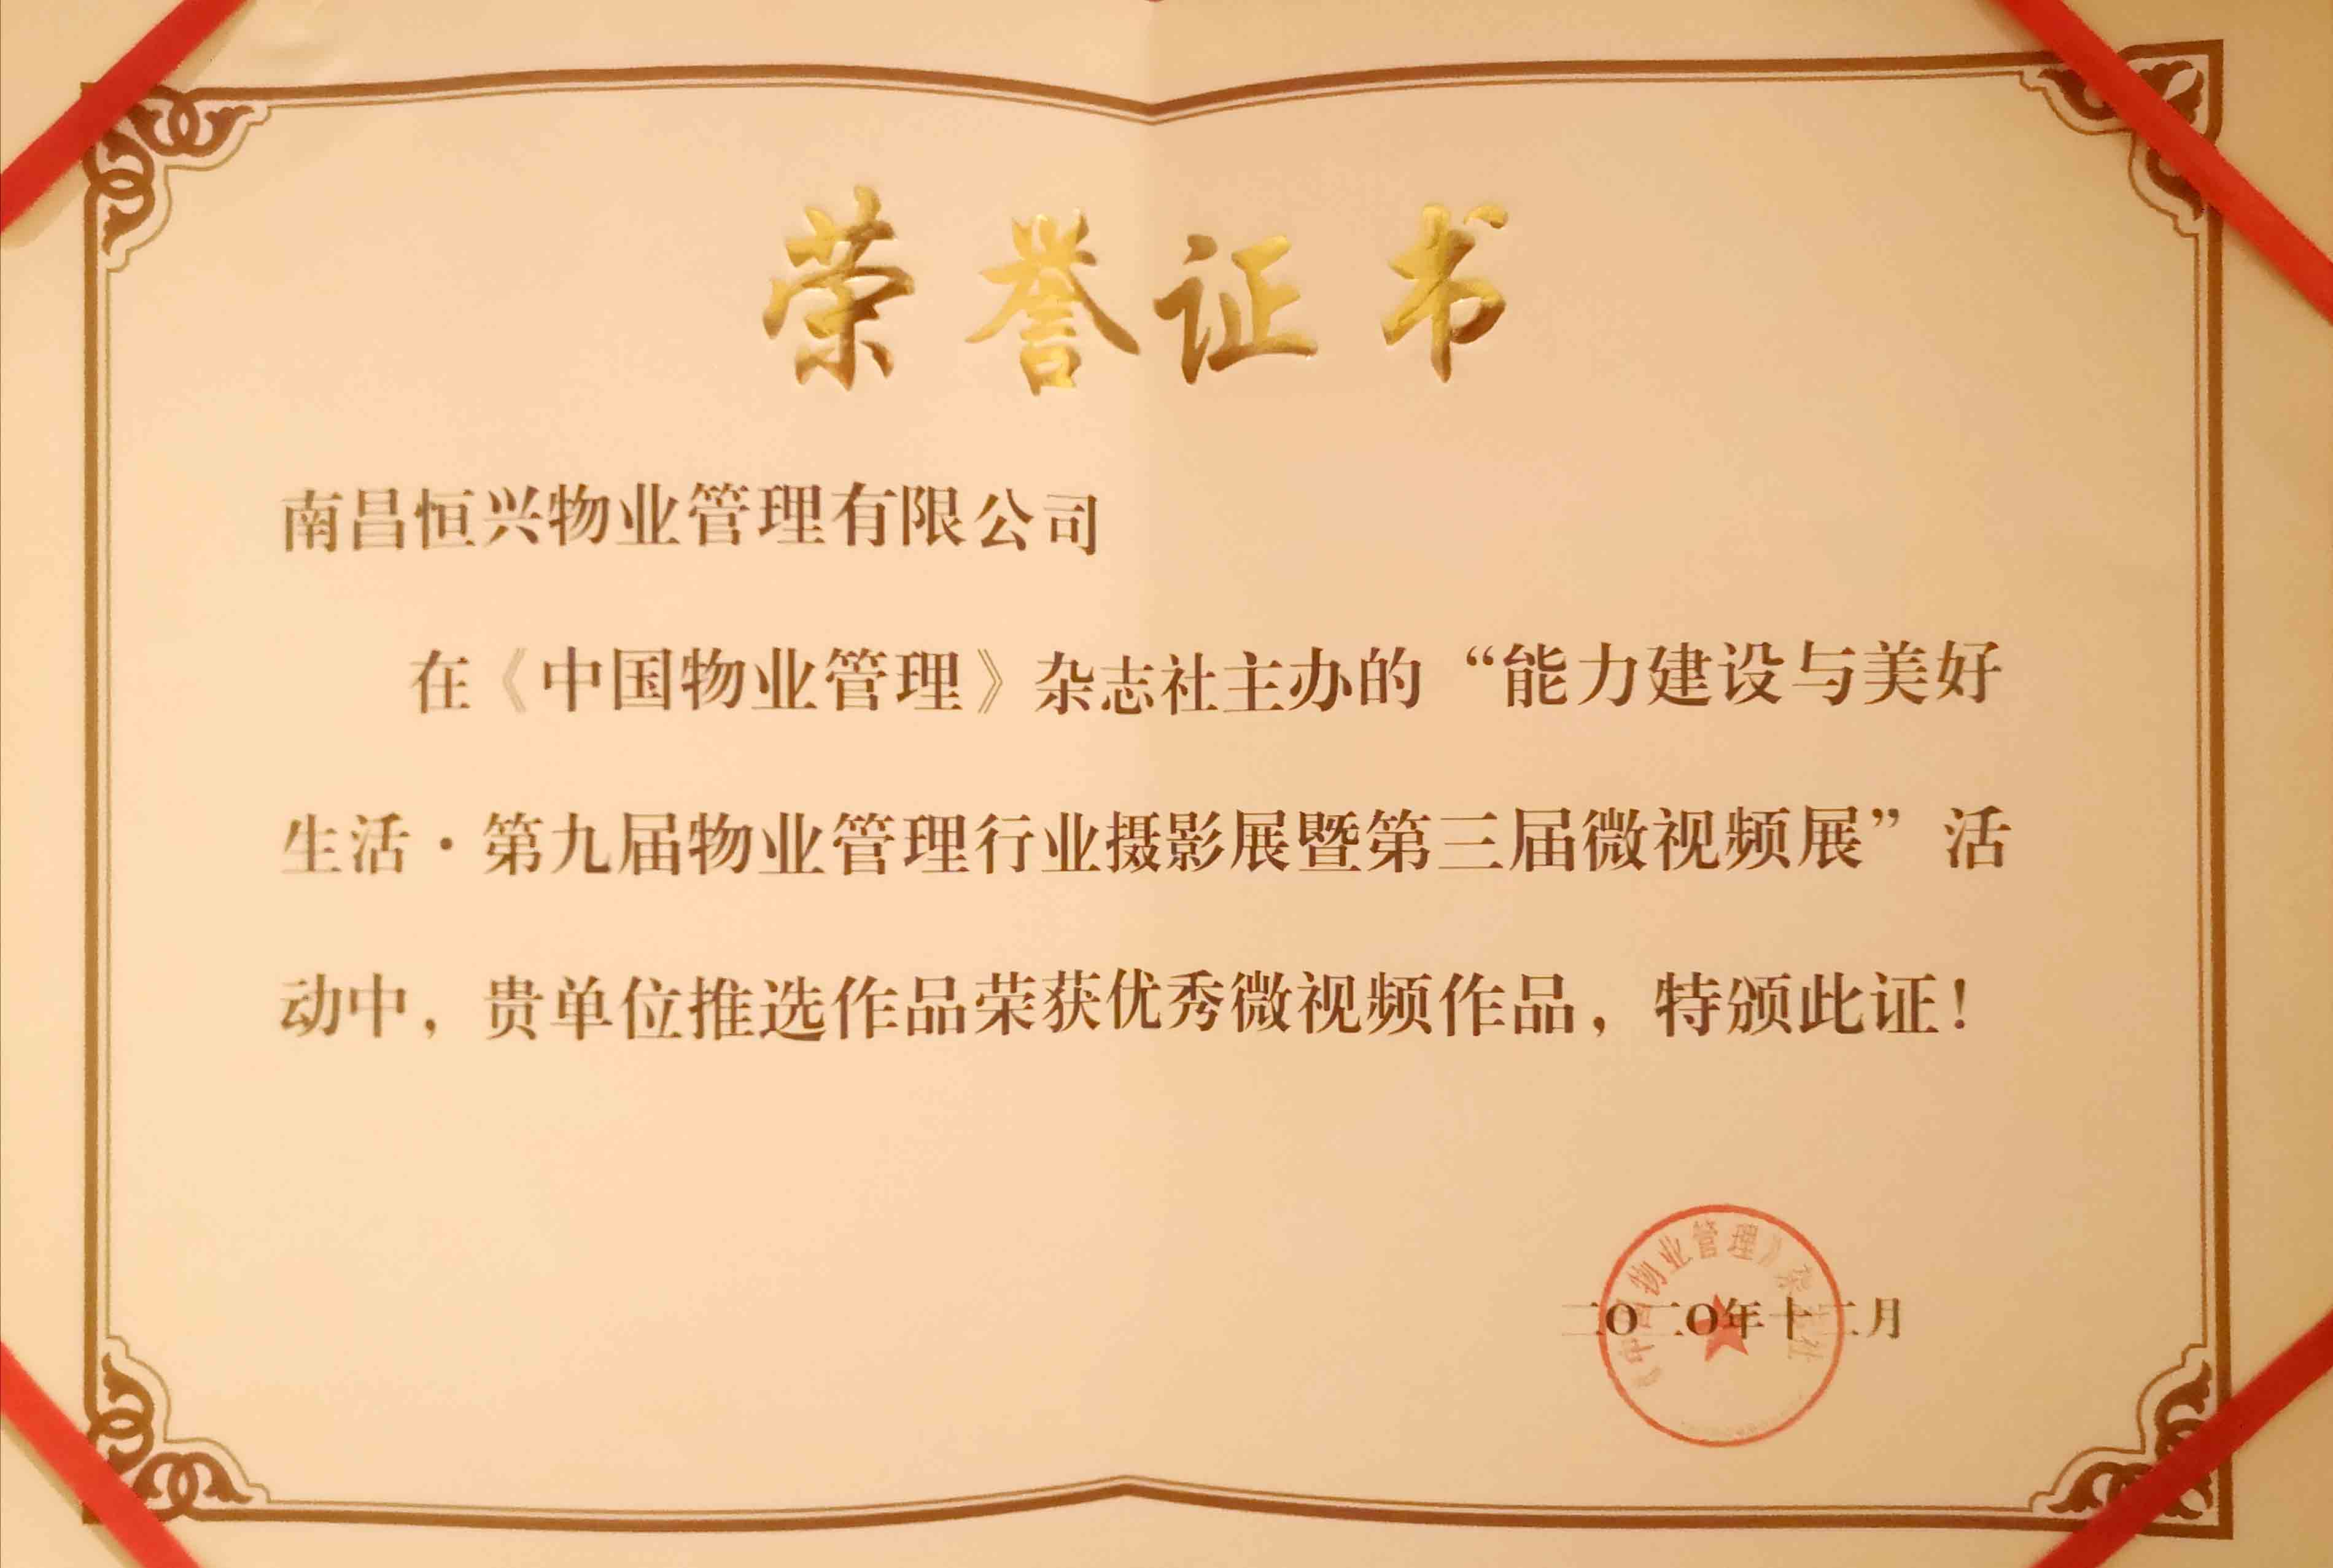 荣誉证书
南昌恒兴物业管理有限公司
在《中国物业管理》杂志社主办的“能力建设与美好
生活·第九届物业管理行业摄影展暨第三届微视频展”活
动中，贵单位推选作品荣获优秀微视频作品，特颁此证！
《中国物业管理》杂志社
二〇二〇年十二月